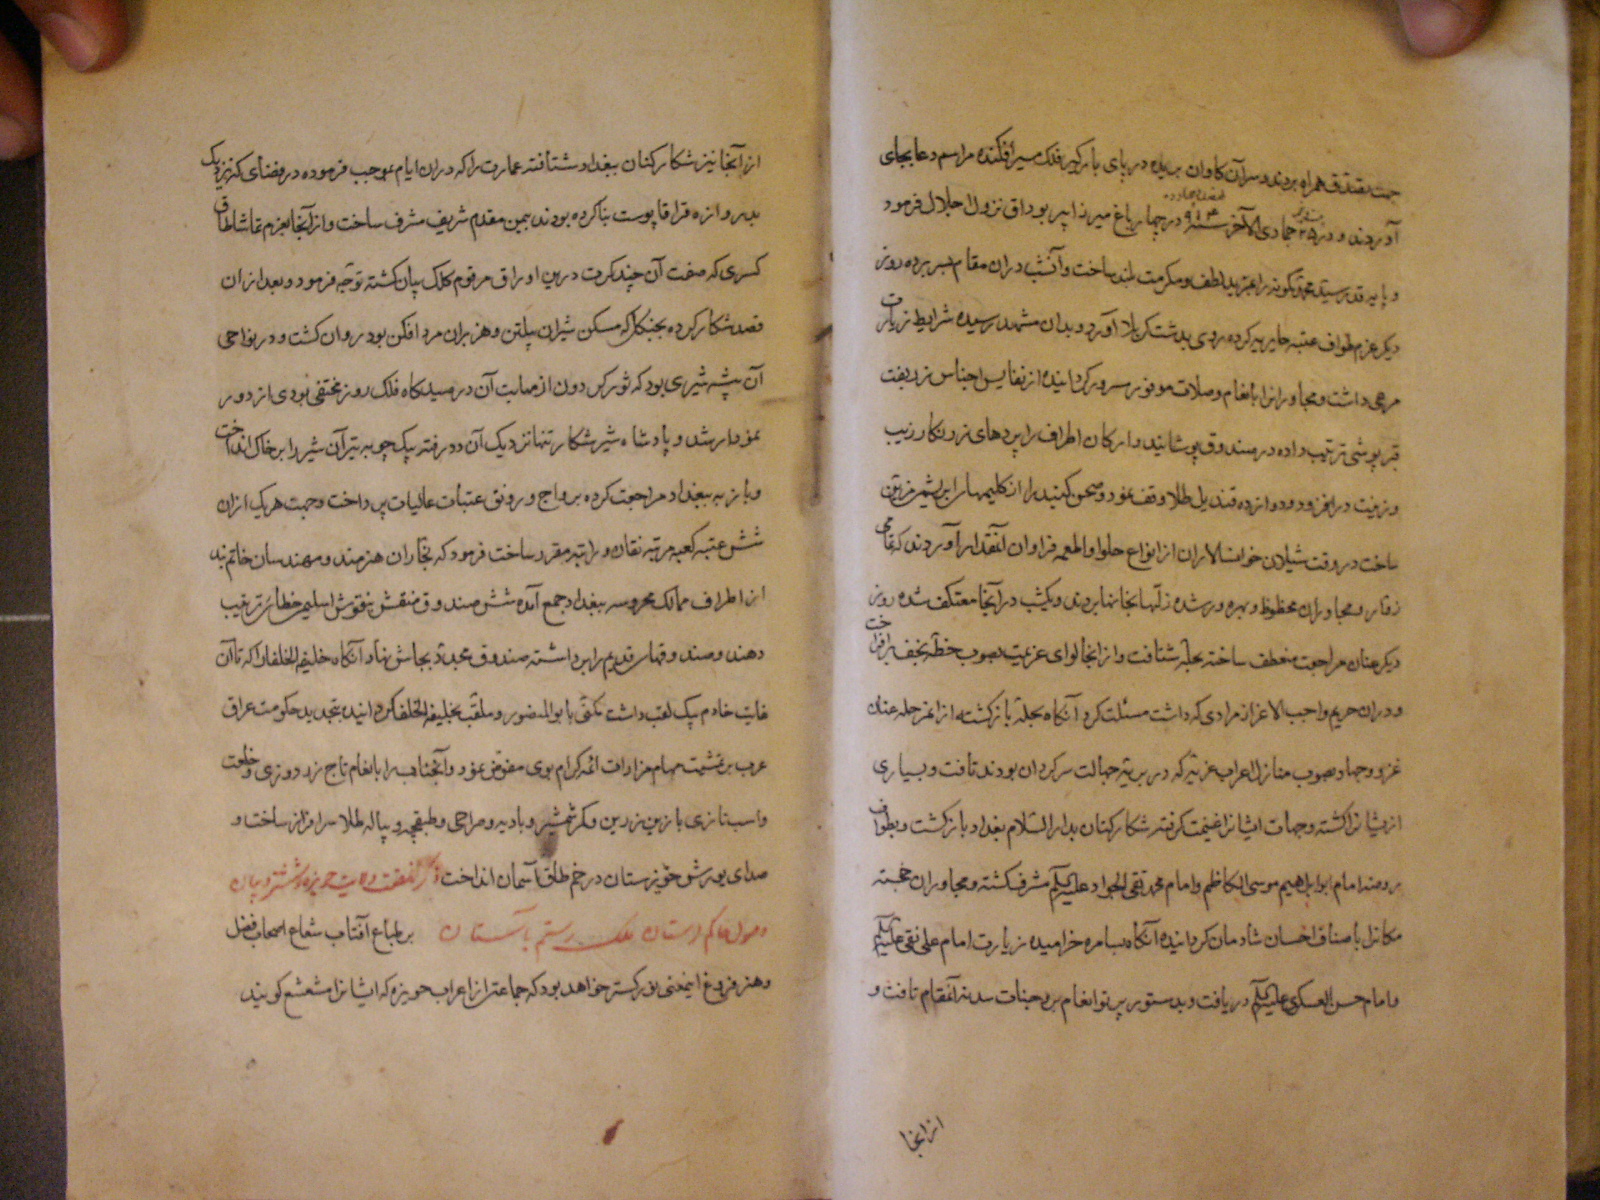 جهت تصدق همراه بردند و سر آن کاوان بریده در پای بارگیر فلک سیر افکنده مراسم دعا بجای
آوردند و در ۲۵ جمادی الآخر سنه ۹۱۴ در چهار باغ میرزا پیر بوداق نزول اجلال فرمود
و پایه قدر سید محمد کمونه را بمزید لطف و مکرمت بلند ساخت و آنشب دران مقام بسر برده روز
دیگر عزم طواف عتبه حایریه کرده روی بدشت کربلا آورد و بدان مشهد رسیده شرایط زیارت
مرعی داشت و مجاورانرا بانعام و صلات موفور مسرور گردانیده از نفایس اجناس زربفت
قبرپوشی ترتیب داده در صندوق پوشانید و ارکان اطراف را پردهای زرنگار زیب
و زینت در افزود و دوازده قندیل طلا وقف نمود و صحن گنبد را از کلیمهای ابریشم مزین
ساخت در وقت شیلان خوانسالاران از انواع حلوا و اطعمه فراوان آنقدر آوردند که تمامی
زوار و مجاوران محظوظ و بهره ور شده زلها بخانها بردند و یکشب در آنجا معتکف شده روز
دیگر عنان مراجعت منعطف ساخته بحله شتافت و از انجا لوای عزیمت بصوب خطه نجف برافراخت
و دران حریم واجب الاعزاز مرادی که داشت مسئلت کرد آنگاه بحله بازگشته از انمرحله عنان
غزو و جهاد بصوب منازل اعراب غزیه که در بریه جهالت سرگردان بودند تافت و بسیاری
ازیشانرا کشته و جهات ایشانرا غنیمت گرفته شکارکنان بدار السلام بغداد بازگشت و بطواف
روضه امام ابو ابراهیم موسی الکاظم و امام محمد تقی الجواد علیه السلم مشرف گشته و مجاوران خجسته
مکانرا باصناف احسان شادمان گردانیده آنگاه بسامره خرامیده زیارت امام علی نقی علیه السلم
و امام حسن العسکری علیه السلم دریافت و بدستور پرتو انعام بر وجنات سدنه آنمقام تافت و
از انجا
از آنجا نیز شکارکنان ببغداد شتافته عمارت را که دران ایام بموجب فرموده در فضای که نزدیک
بدروازه قراقاپوست بنا کرده بودند بیمن مقدم شریف مشرف ساخت و از آنجا بعزم تماشا طاق
کسری که صفت آن چند کرت درین اوراق مرقوم کلک بیان گشته توجه فرمود و بعد از ان
قصد شکار کرده بجنگل که مسکن شیران پیلتن و هزبران مرد افکن بود روان گشت و در نواحی
آن بیشه شیری بود که ثور گردون از مهابت آن در صیدگاه فلک روز مختفی بودی از دور
نمودار شد و پادشاه شیر شکار تنها نزدیک آن دد رفته بیک چوبه تیر آن شیر را بر خاک انداخت
و باز به بغداد مراجعت کرده برواج و رونق عتبات عالیات پرداخت و جهت هر یک ازان
شش عتبه کعبه مرتبه نقاره و راتبه مقرر ساخت فرمود که نجاران هنرمند و مهندسان خاتم بند
از اطراف ممالک محروسه ببغداد جمع آمده شش صندوق منقش بنقوش اسلیمی خطایی ترتیب
دهند و صندوقهای قدیم را برداشته صندوق مجدد بجاش نهاد آنگاه خلیفه الخلفا را که تا آن
غایت خادم بیک لقب داشت مکنی بابو المنصور و ملقب بخلیفه الخلفا گردانیده بتجدید حکومت عراق
عرب بر تمشیت مهام مزارات ائمه کرام بوی مفوض نمود و آنجناب را بانعام تاج زردوزی و خلعت
و اسب تازی با زین زرین و کمر شمشیر و بادیه و صراحی و طبقچه و پیاله طلا سرافراز ساخت و
صدای یورش خوزستان در خم طاق آسمان انداخت ذکر
وصول حاکم لرستان ملک رستم بآستان بر طباع آفتاب شعاع اصحاب فضل
و هنر فروغ اینمعنی نور گستر خواهد بود که جماعتی از اعراب حویزه که ایشانرا مشعشع گویند